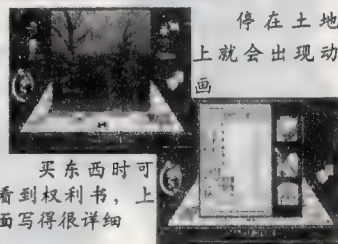 停在土地
上就会出现动
画
买东西时可
看到权利书，上
面写得很详细